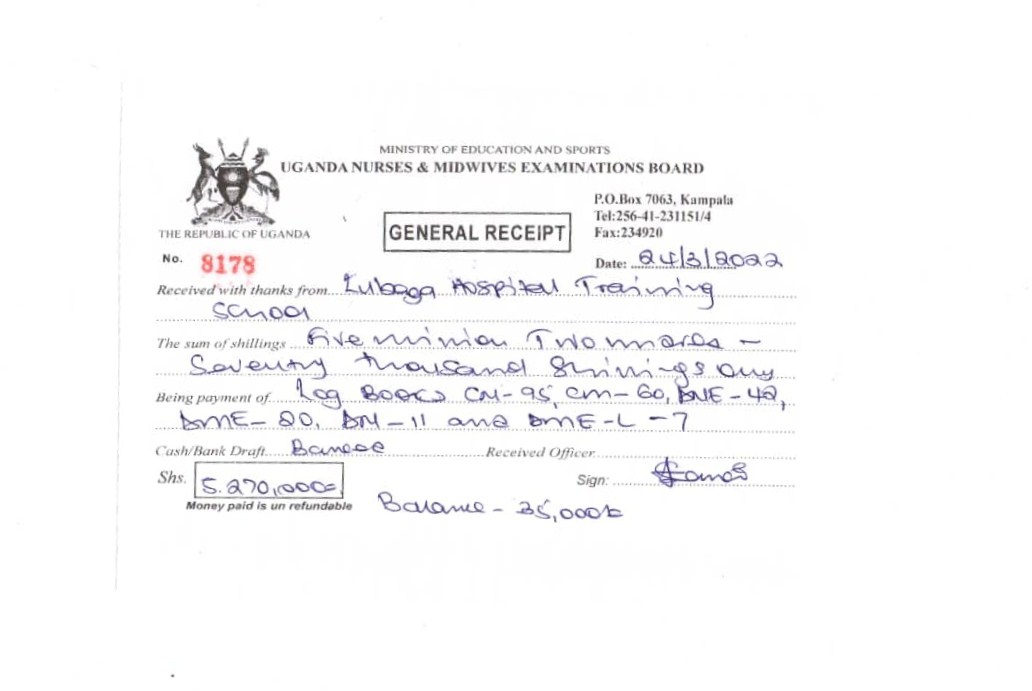 MINISTRY OF EDUCATION AND SPORTS
UGANDA NURSES & MIDWIVES EXAMINATIONS BOARD
P.O.Box 7063, Kampala
Tel:256-41-231151/4
Fax:234920
THE REPUBLIC OF UGANDA
GENERAL RECEIPT
No. 8178
Date: 24/3/2022
Received with thanks from Lubaga Hospital Training
School
The sum of shillings Five million Two hundred
Seventy thousand Shillings only
Being payment of Log Books CN-95, CM-60, DNE-42,
DME-20, DM-11 and DME-L-7
Cash/Bank Draft Received Officer
Shs. 5.270,000= Sign:
Money paid is un refundable Balance - 35,000